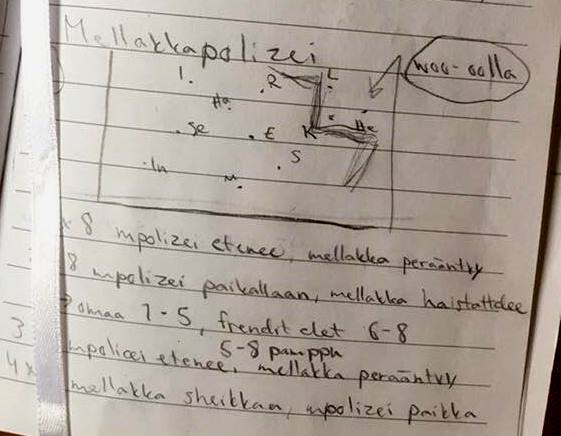 Mellakkapolizei
woo-oolla
I. R L
Ha
Se E K He
S
In M
x 8 mpolizei etenee, mellakka perääntyy
8 mpolizei paikallaan, mellakka haistattelee
omaa 1-5, frendit elet 6-8
5-8 pampph
3 mpolicei etenee, mellakka perääntyy
4x mellakka sheikkaa, mpolizei paikka